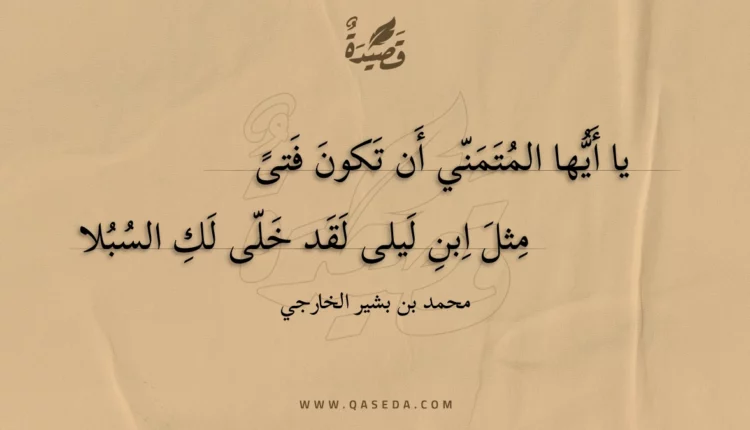 قَصِيدَةٌ
يا أَيُّها المُتَمَنّي أَن تَكونَ فَتىً
مِثلَ اِبنِ لَيلى لَقَد خَلّى لَكِ السُبُلا
محمد بن بشير الخارجي
WWW.QASEDA.COM